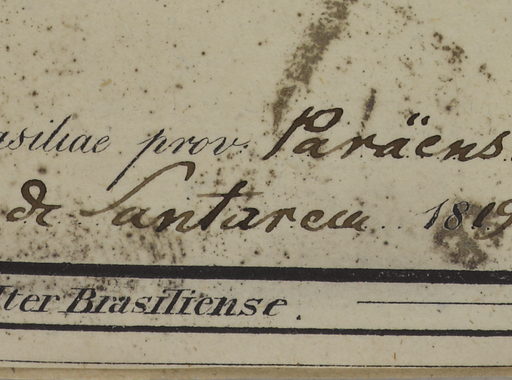 asiliae prov. Paräens.
de Santarem 1819
Iter Brasiliense.